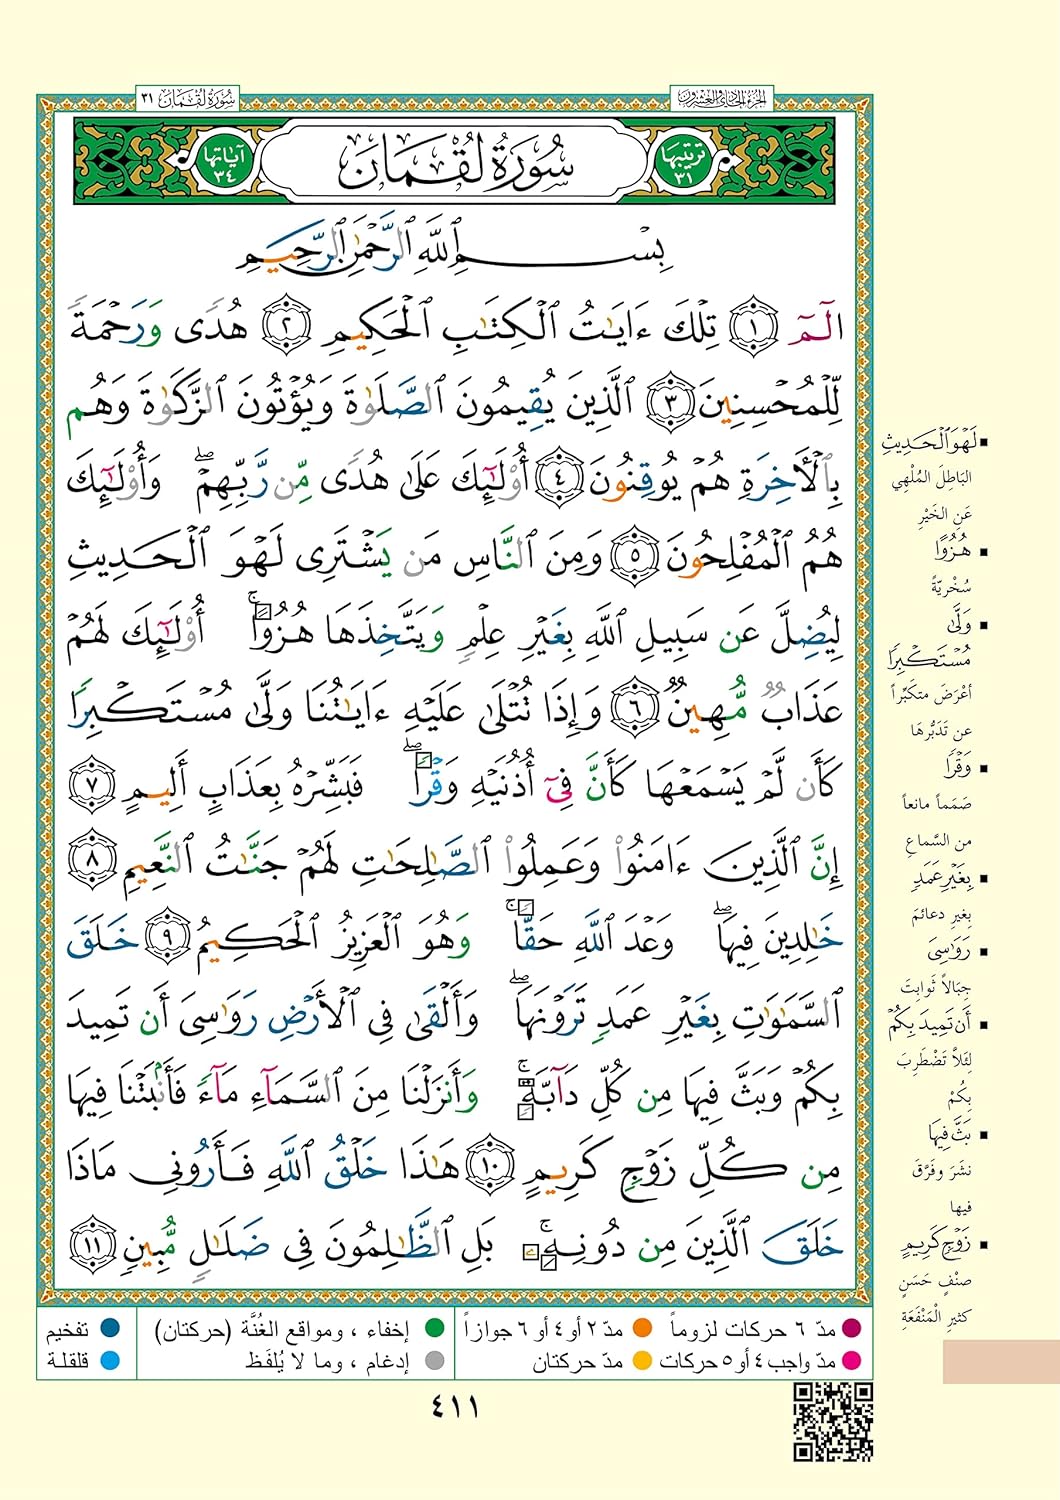 الجزء الحادي والعشرون
سُورَةُ لُقْمَان ٣١
ترتيبها ٣١
سُورَةُ لُقْمَان
آياتها ٣٤
بِسْمِ ٱللَّهِ ٱلرَّحْمَٰنِ ٱلرَّحِيمِ
الٓمٓ ١ تِلْكَ ءَايَٰتُ ٱلْكِتَٰبِ ٱلْحَكِيمِ ٢ هُدًى وَرَحْمَةً
لِّلْمُحْسِنِينَ ٣ ٱلَّذِينَ يُقِيمُونَ ٱلصَّلَوٰةَ وَيُؤْتُونَ ٱلزَّكَوٰةَ وَهُم
بِٱلْأَخِرَةِ هُمْ يُوقِنُونَ ٤ أُو۟لَٰٓئِكَ عَلَىٰ هُدًى مِّن رَّبِّهِمْ ۖ وَأُو۟لَٰٓئِكَ
هُمُ ٱلْمُفْلِحُونَ ٥ وَمِنَ ٱلنَّاسِ مَن يَشْتَرِى لَهْوَ ٱلْحَدِيثِ
لِيُضِلَّ عَن سَبِيلِ ٱللَّهِ بِغَيْرِ عِلْمٍ وَيَتَّخِذَهَا هُزُوًا ۚ أُو۟لَٰٓئِكَ لَهُمْ
عَذَابٌ مُّهِينٌ ٦ وَإِذَا تُتْلَىٰ عَلَيْهِ ءَايَٰتُنَا وَلَّىٰ مُسْتَكْبِرًا
كَأَن لَّمْ يَسْمَعْهَا كَأَنَّ فِىٓ أُذُنَيْهِ وَقْرًا ۖ فَبَشِّرْهُ بِعَذَابٍ أَلِيمٍ ٧
إِنَّ ٱلَّذِينَ ءَامَنُوا۟ وَعَمِلُوا۟ ٱلصَّٰلِحَٰتِ لَهُمْ جَنَّٰتُ ٱلنَّعِيمِ ٨
خَٰلِدِينَ فِيهَا ۖ وَعْدَ ٱللَّهِ حَقًّا ۚ وَهُوَ ٱلْعَزِيزُ ٱلْحَكِيمُ ٩ خَلَقَ
ٱلسَّمَٰوَٰتِ بِغَيْرِ عَمَدٍ تَرَوْنَهَا ۖ وَأَلْقَىٰ فِى ٱلْأَرْضِ رَوَٰسِىَ أَن تَمِيدَ
بِكُمْ وَبَثَّ فِيهَا مِن كُلِّ دَآبَّةٍ ۚ وَأَنزَلْنَا مِنَ ٱلسَّمَآءِ مَآءً فَأَنۢبَتْنَا فِيهَا
مِن كُلِّ زَوْجٍ كَرِيمٍ ١٠ هَٰذَا خَلْقُ ٱللَّهِ فَأَرُونِى مَاذَا
خَلَقَ ٱلَّذِينَ مِن دُونِهِۦ ۚ بَلِ ٱلظَّٰلِمُونَ فِى ضَلَٰلٍ مُّبِينٍ ١١
▪ لَهْوَ ٱلْحَدِيثِ
البَاطِلَ المُلْهِي
عَنِ الخَيْرِ
▪ هُزُوًا
سُخْرِيَّةً
▪ وَلَّىٰ
مُسْتَكْبِرًا
أعْرَضَ متكَبِّراً
عن تَدَبُّرِهَا
▪ وَقْرًا
صَمَماً مانعاً
من السَّماعِ
▪ بِغَيْرِ عَمَدٍ
بِغيرِ دعائمَ
▪ رَوَٰسِىَ
جِبَالاً ثَوابِتَ
▪ أَن تَمِيدَ بِكُمْ
لِئَلاَّ تَضْطَرِبَ
بِكُمْ
▪ بَثَّ فِيهَا
نشَرَ وفَرَّقَ
فيها
▪ زَوْجٍ كَرِيمٍ
صنْفٍ حَسَنٍ
كثيرِ الْمَنْفَعَةِ
مدّ ٦ حركات لزوماً مدّ ٢ أو ٤ أو ٦ جوازاً
مدّ واجب ٤ أو ٥ حركات مدّ حركتان
إخفاء ، ومواقع الغُنَّة (حركتان)
إدغام ، وما لا يُلفَظ
تفخيم
قلقلة
٤١١